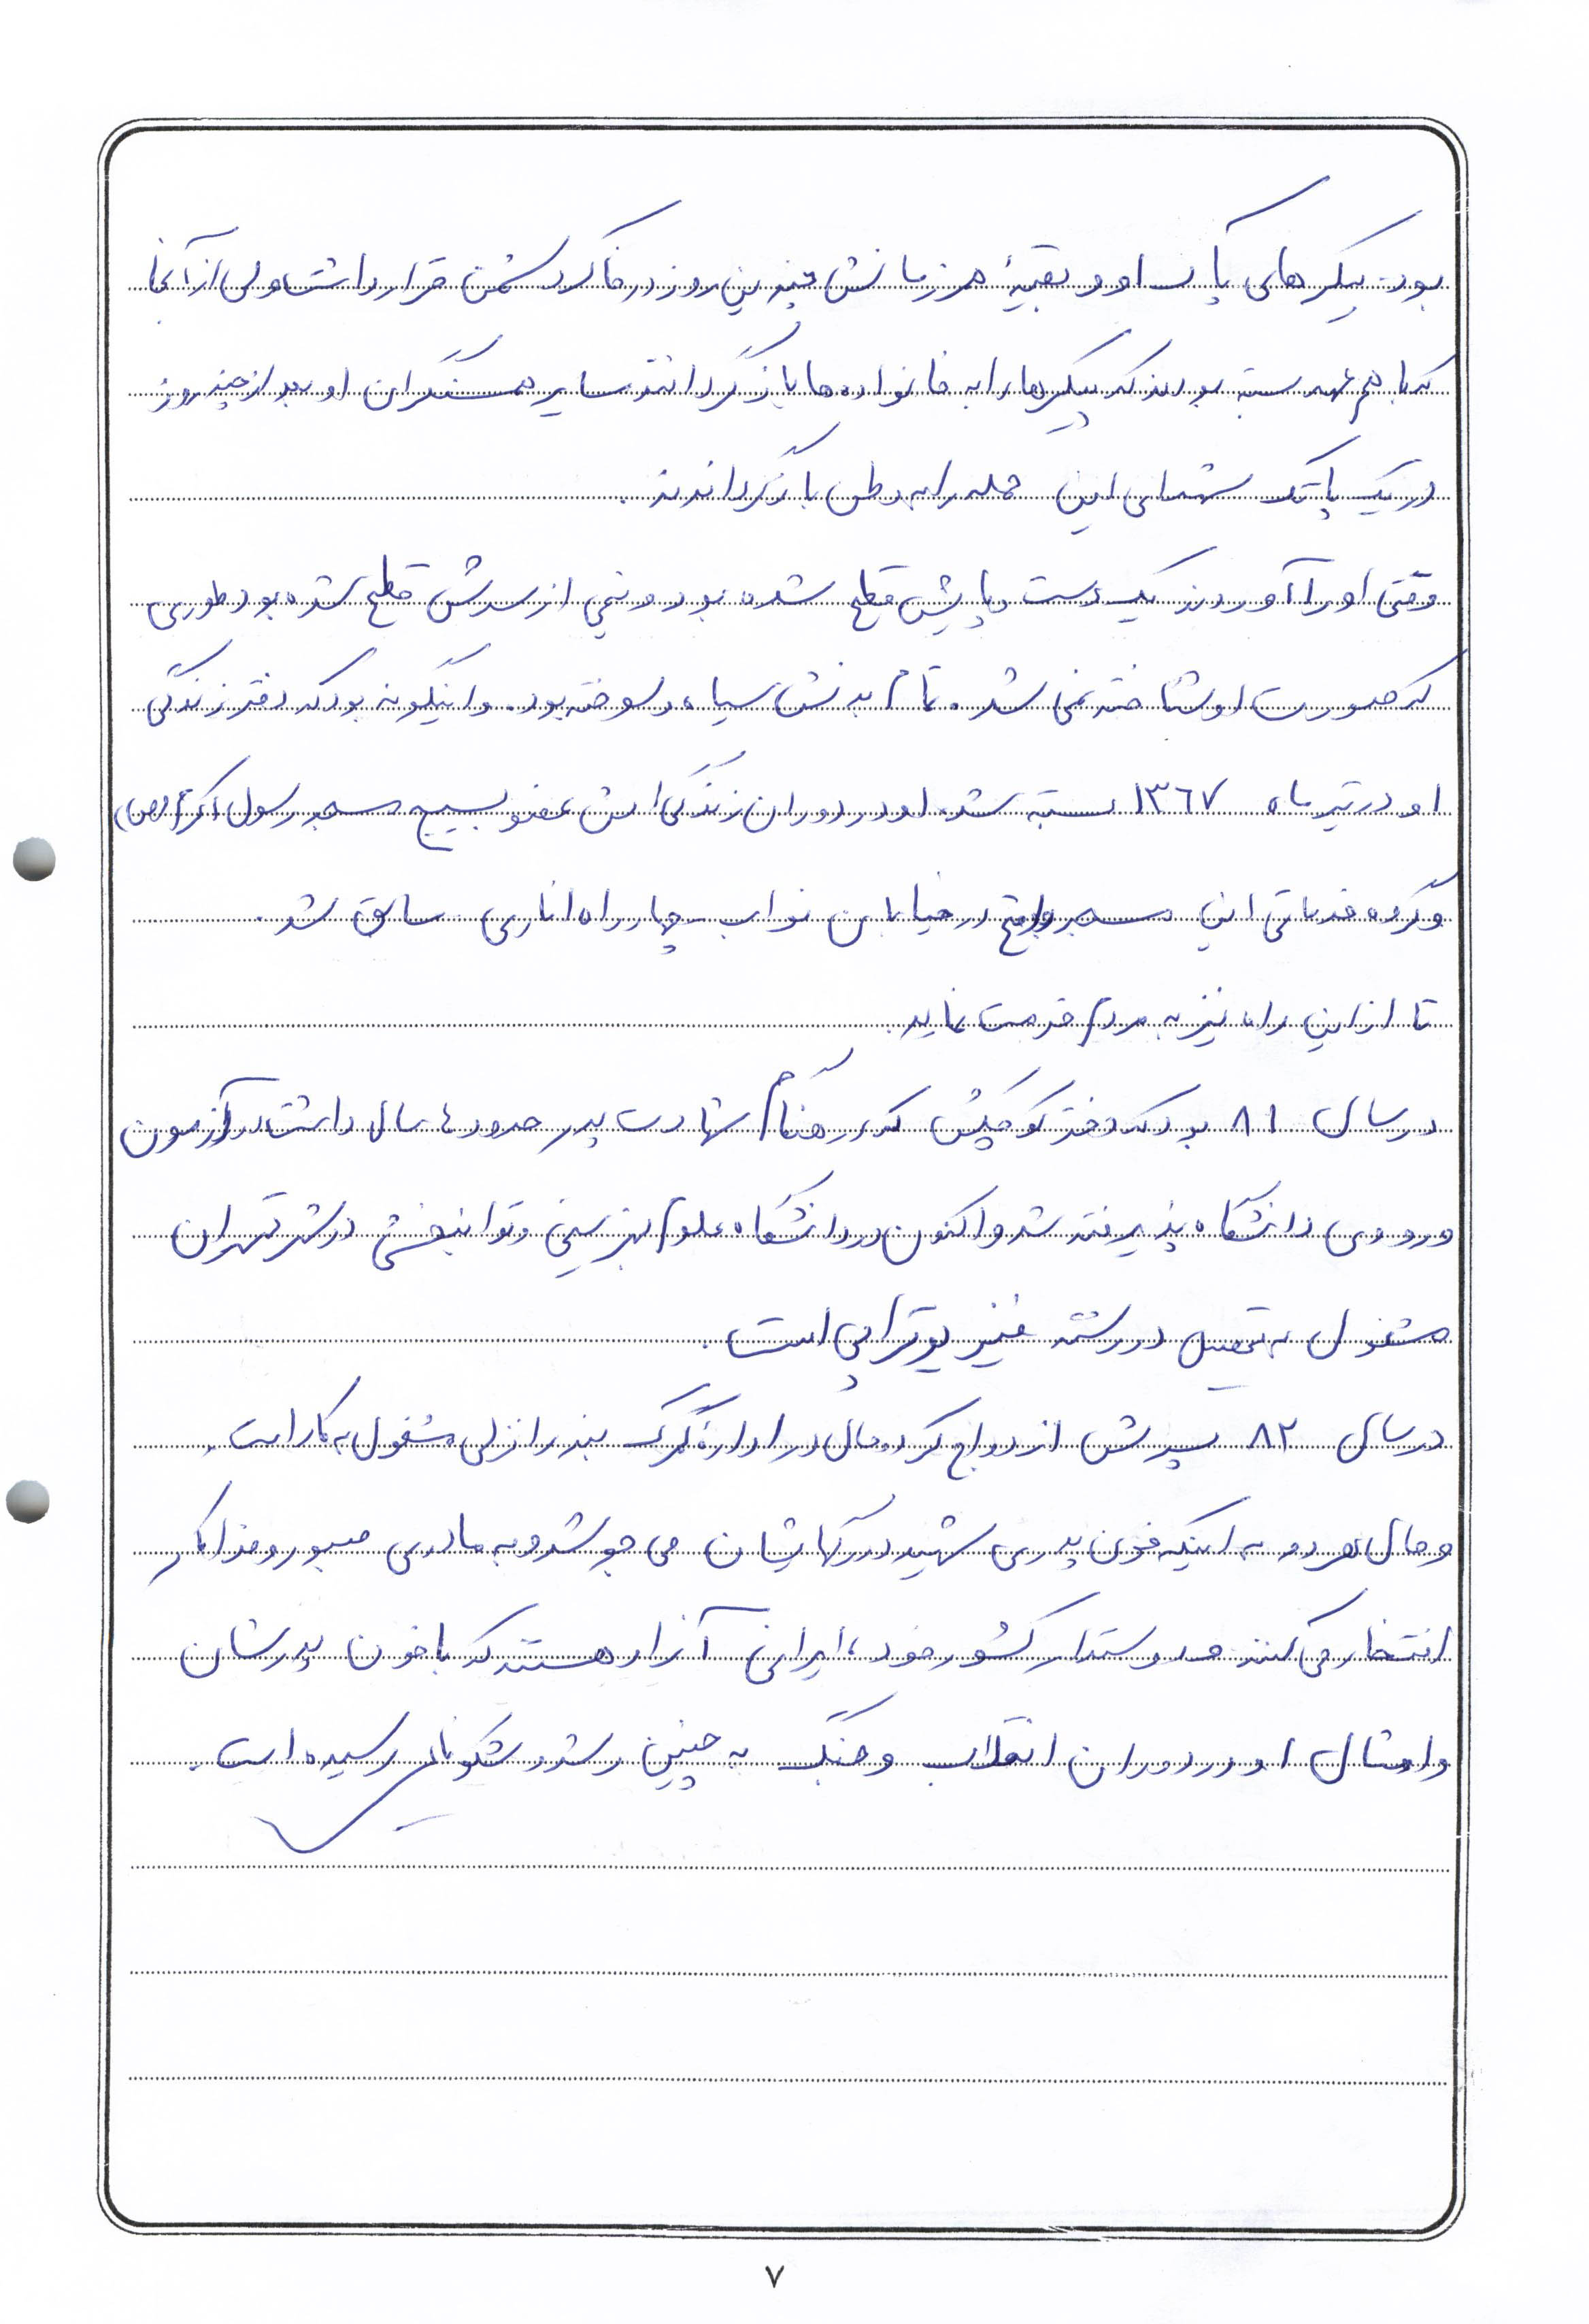 بود. پیکرهای پاک او و بقیهٔ همرزمانش چندین روز در خاک دشمن قرار داشت ولی از آنجا
که با هم عهد بسته بودند که پیکرها را به خانواده‌ها بازگردانند سایر همسنگران او بعد از چند روز
در یک پاتک شهدای این حمله را به وطن بازگرداندند.
وقتی او را آوردند یک دست و پایش قطع شده بود و نیمی از سرش قطع شده بود طوری
که صورت او شناخته نمی شد. تمام بدنش سیاه و سوخته بود. و اینگونه بود که دفتر زندگی
او در تیر ماه ۱۳۶۷ بسته شد. او در دوران زندگی اش عضو بسیج مسجد رسول اکرم (ص)
و گروه خدماتی این مسجد واقع در خیابان نواب چهارراه اناری سابق شد.
تا از این راه نیز به مردم خدمت نماید.
در سال ۸۱ بود که دختر کوچکش که در هنگام شهادت پدر حدود ۴ سال داشت در آزمون
ورودی دانشگاه پذیرفته شد و اکنون در دانشگاه علوم بهزیستی و توانبخشی در شهر تهران
مشغول به تحصیل در رشته فیزیوتراپی است.
در سال ۸۲ پسرش ازدواج کرد و حال در ادارهٔ گمرک بندر انزلی مشغول به کار است.
و حال هر دو به اینکه خون پدری شهید در رگهایشان می جوشد و به مادری صبور و فداکار
افتخار می کنند و دوستدار کشور خود، ایرانی آزاد هستند که با خون پدرشان
و امثال او در دوران انقلاب و جنگ به چنین رشد و شکوفایی رسیده است.
۷